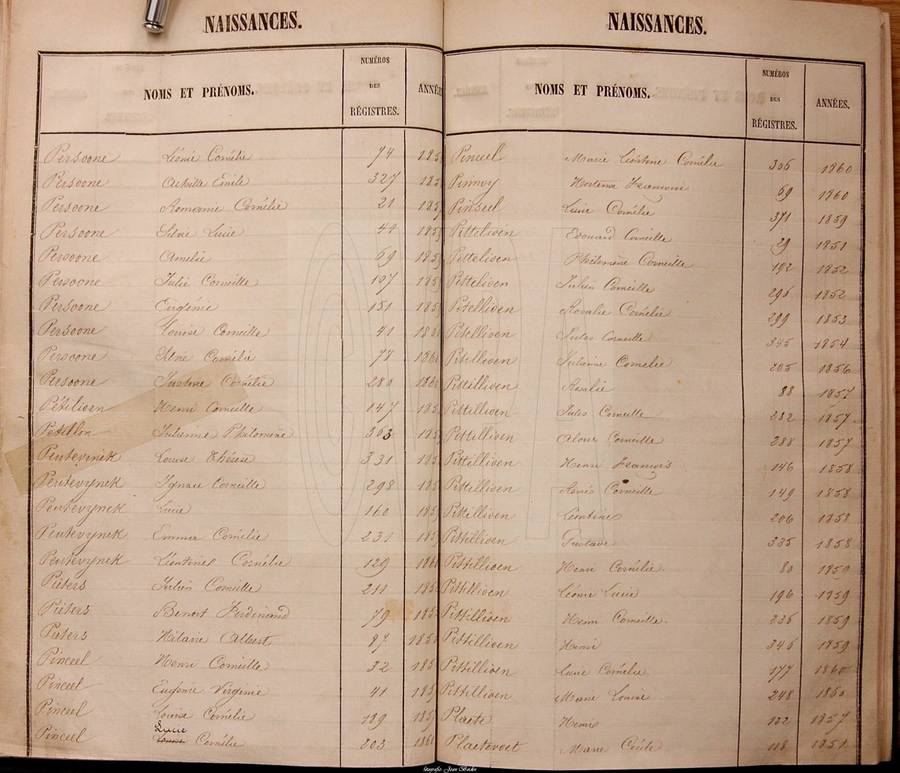 NAISSANCES.
NOMS ET PRÉNOMS. NUMÉROS DES RÉGISTRES. ANNÉES
Persoone Léonie Cornélie 74 185
Persoone Achille Emile 327 185
Persoone Romanie Cornélie 21 185
Persoone Silvie Lucie 44 185
Persoone Amelie 69 185
Persoone Julie Corneille 107 185
Persoone Eugénie 151 185
Persoone Louise Corneille 41 18
Persoone Cornélie 78 186
Persoone Justine Cornélie 280 186
Pétilioen Henri Corneille 147 185
Petillon Julienne Philomène 363 185
Peutevynck Louise Thérèse 331 185
Peutevynck Ignace Corneille 298 185
Peutevynck Lucie 160 185
Peutevynck Emma Cornélie 231 185
Peutevynck Léontine Cornélie 129 186
Pieters Julien Corneille 211 185
Pieters Benoit Ferdinand 79 185
Pieters Hilaire Albert 97 185
Pinceel Henri Corneille 32 185
Pinceel Eugénie Virginie 41 185
Pinceel Louise Cornélie 189 185
Pinceel Lucie Cornélie 203 186
NAISSANCES.
NOMS ET PRÉNOMS. NUMÉROS DES RÉGISTRES. ANNÉES.
Pinceel Marie Léontine Cornélie 306 1860
Hortense 69 1860
Pinseel Lucie Cornélie 371 1859
Pittilioen Edouard Corneille 29 1851
Pittelioen Philomène Corneille 192 1852
Pittelioen Julien Corneille 296 1852
Pitellioen Rosalie Cornélie 299 1853
Pitellioen Jules Corneille 345 1854
Pitellioen Julienne Cornelie 205 1856
Pittillioen Rosalie 88 1857
Pittillioen Jules Corneille 232 1857
Pittillioen Aloise Corneille 288 1857
Pittillioen Henri 146 1858
Pittillioen Corneille 149 1858
Pittillioen Léontine 206 1858
Pittillioen Gustave 335 1858
Pittillioen Henri Cornélie 80 1859
Pittillioen Léonie Lucie 196 1859
Pittillioen Henri Corneille 235 1859
Pittillioen Henri 346 1859
Pittillioen Lucie Cornélie 177 1860
Pittillioen Marie Louise 248 1860
Plaete Henri 122 1857
Plaetevoet Marie 118 1851